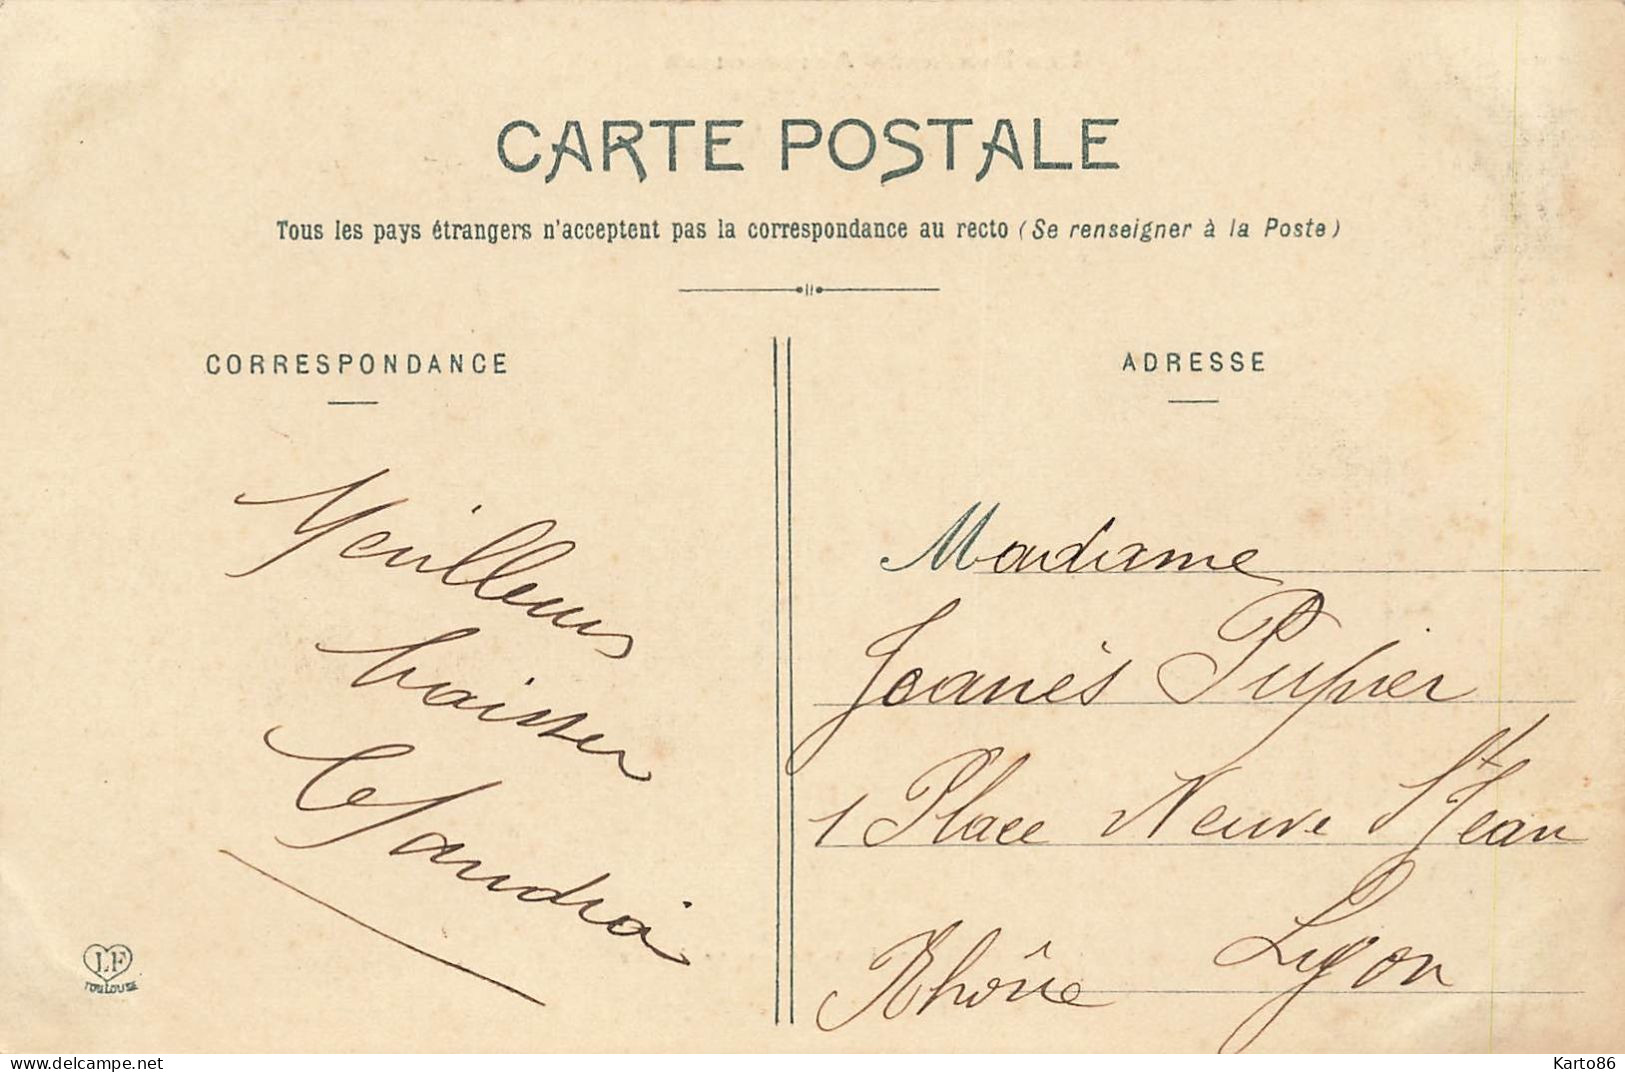 CARTE POSTALE
Tous les pays étrangers n'acceptent pas la correspondance au recto (Se renseigner à la Poste)
CORRESPONDANCE
Meilleurs
baisers
ADRESSE
Madame
Joanès Pupier
1 Place Neuve St Jean
Lyon
Rhône
LF
TOULOUSE
delcampe.net
Karto86